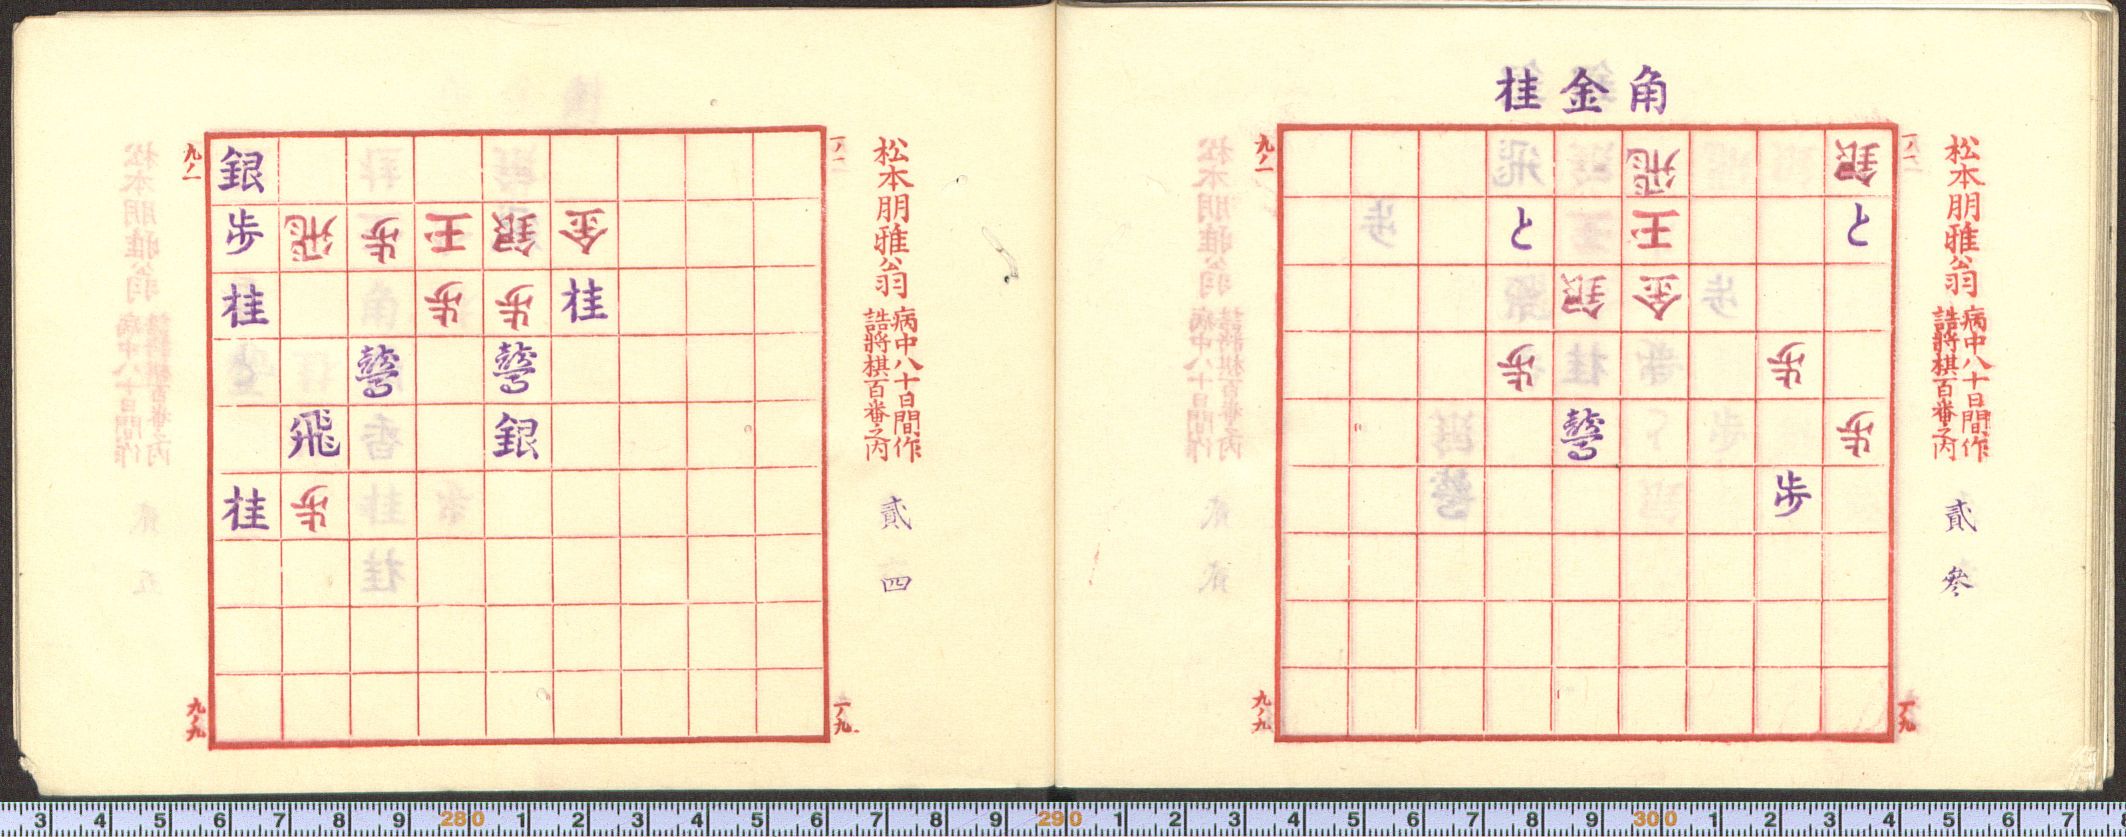 角金桂
松本朋雅翁
病中八十日間作
詰將棋百番之内
貳参
一ノ一
九ノ一
飛 銀
と 王 と
銀 金
歩 歩
歩
歩
九ノ九
一ノ九
松本朋雅翁
病中八十日間作
詰將棋百番之内
貳四
一ノ一
九ノ一
銀
歩 飛 歩 王 銀 金
桂 歩 歩 桂
飛 銀
桂 歩
九ノ九
一ノ九
3 4 5 6 7 8 9 280 1 2 3 4 5 6 7 8 9 290 1 2 3 4 5 6 7 8 9 300 1 2 3 4 5 6 7